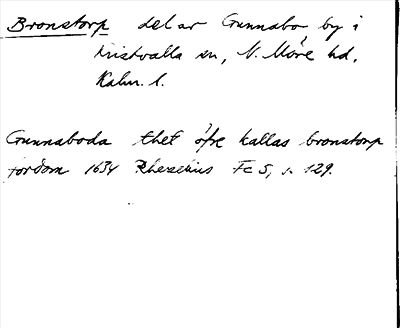 Bronstorp del av Gunnabo, by i
Kristvalla sn, N. Möre hd,
Kalm. l.
Gunnaboda thet öfre kallas bronstorp
fordom 1634 Rhezelius Fc 5, s. 129.